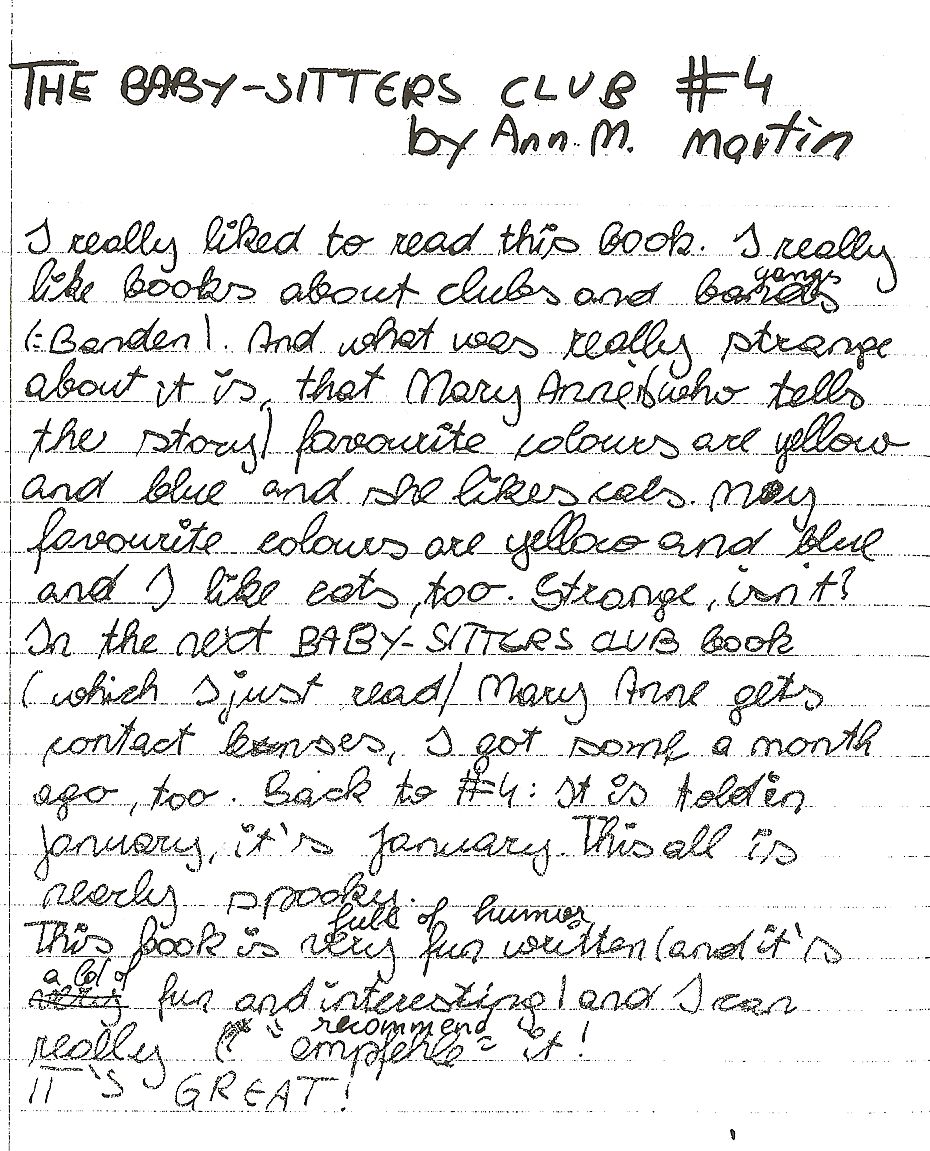 THE BABY-SITTERS CLUB #4
by Ann. M. Martin
I really liked to read this book. I really
gangs
like books about clubs and bands
(=Banden). And what was really strange
about it is, that Mary Anne's (who tells
the story) favourite colours are yellow
and blue and she likes cats. My
favourite colours are yellow and blue
and I like cats, too. Strange, isn't?
In the next BABY-SITTERS CLUB book
(which I just read) Mary Anne gets
contact lenses, I got some a month
ago, too. Back to #4: It is told in
january, it's january. This all is
nearly spooky.
full of humor
This book is very fun written (and it's
a lot of
fun and interesting) and I can
recommend
really (* "empfehle" it!
IT'S GREAT!